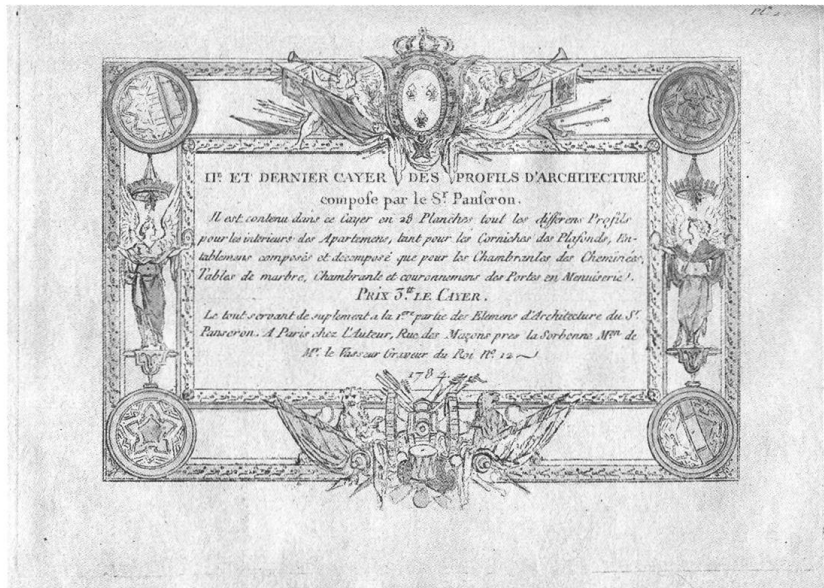 IIe. ET DERNIER CAYER DES PROFILS D'ARCHITECTURE
compose par le Sr. Panseron.
Il est contenu dans ce Cayer en 28 Planches tout les différens Profils
pour les interieurs des Apartemens, tant pour les Corniches des Plafonds, En-
tablemens composés et decomposé que pour les Chambranles des Cheminées,
Tables de marbre, Chambranle et couronnemens des Portes en Menuiserie.
PRIX 3.tt LE CAYER.
Le tout servant de suplement a la 1ere. partie des Elemens d'Architecture du Sr.
Panseron. A Paris chez L'Auteur, Rue des Maçons pres la Sorbonne Mson. de
Mr. le Vasseur Graveur du Roi No. 12
1784.